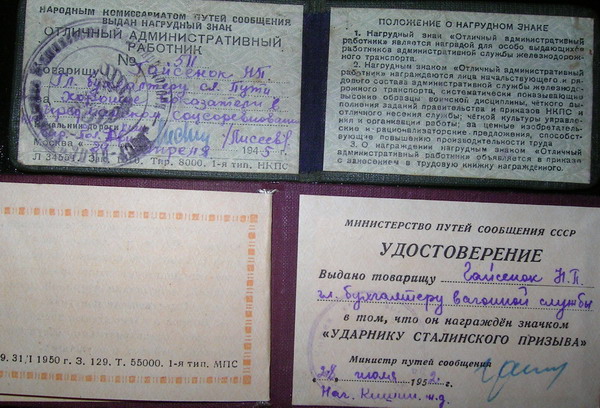 НАРОДНЫМ КОМИССАРИАТОМ ПУТЕЙ СООБЩЕНИЯ
ВЫДАН НАГРУДНЫЙ ЗНАК
ОТЛИЧНЫЙ АДМИНИСТРАТИВНЫЙ
РАБОТНИК
№ 511
товарищу Гайсенок Н.П.
Гл. бухгалтеру сл. Пути
за хорошие показатели в
соцсоревновании
Начальник дороги
Москва
194 г.
Тир. 8000. 1-я тип. НКПС
ПОЛОЖЕНИЕ О НАГРУДНОМ ЗНАКЕ
1. Нагрудный знак «Отличный административный
работник» является наградой для особо выдающихся
работников административной службы железнодорож-
ного транспорта.
2. Нагрудным знаком «Отличный административный
работник» награждаются лица начальствующего и ря-
дового состава административной службы железнодо-
рожного транспорта, систематически показывающие
высокие образцы воинской дисциплины, чёткого вы-
полнения заданий правительства и приказов НКПС и
отличного несения службы; чёткой культуры управле-
ния и организации работы; за ценные изобретатель-
ские и рационализаторские предложения, способст-
вующие повышению производительности труда
3. О награждении нагрудным знаком «Отличный
административный работник» объявляется в приказе
с занесением в трудовую книжку награжденного.
9. 31/I 1950 г. З. 129. Т. 55000. 1-я тип. МПС
МИНИСТЕРСТВО ПУТЕЙ СООБЩЕНИЯ СССР
УДОСТОВЕРЕНИЕ
Выдано товарищу Гайсенок Н.П.
гл. бухгалтеру вагонной службы
в том, что он награждён значком
«УДАРНИКУ СТАЛИНСКОГО ПРИЗЫВА»
Министр путей сообщения
28 июля 1952 г.
Нач. Кишин. ж.д.